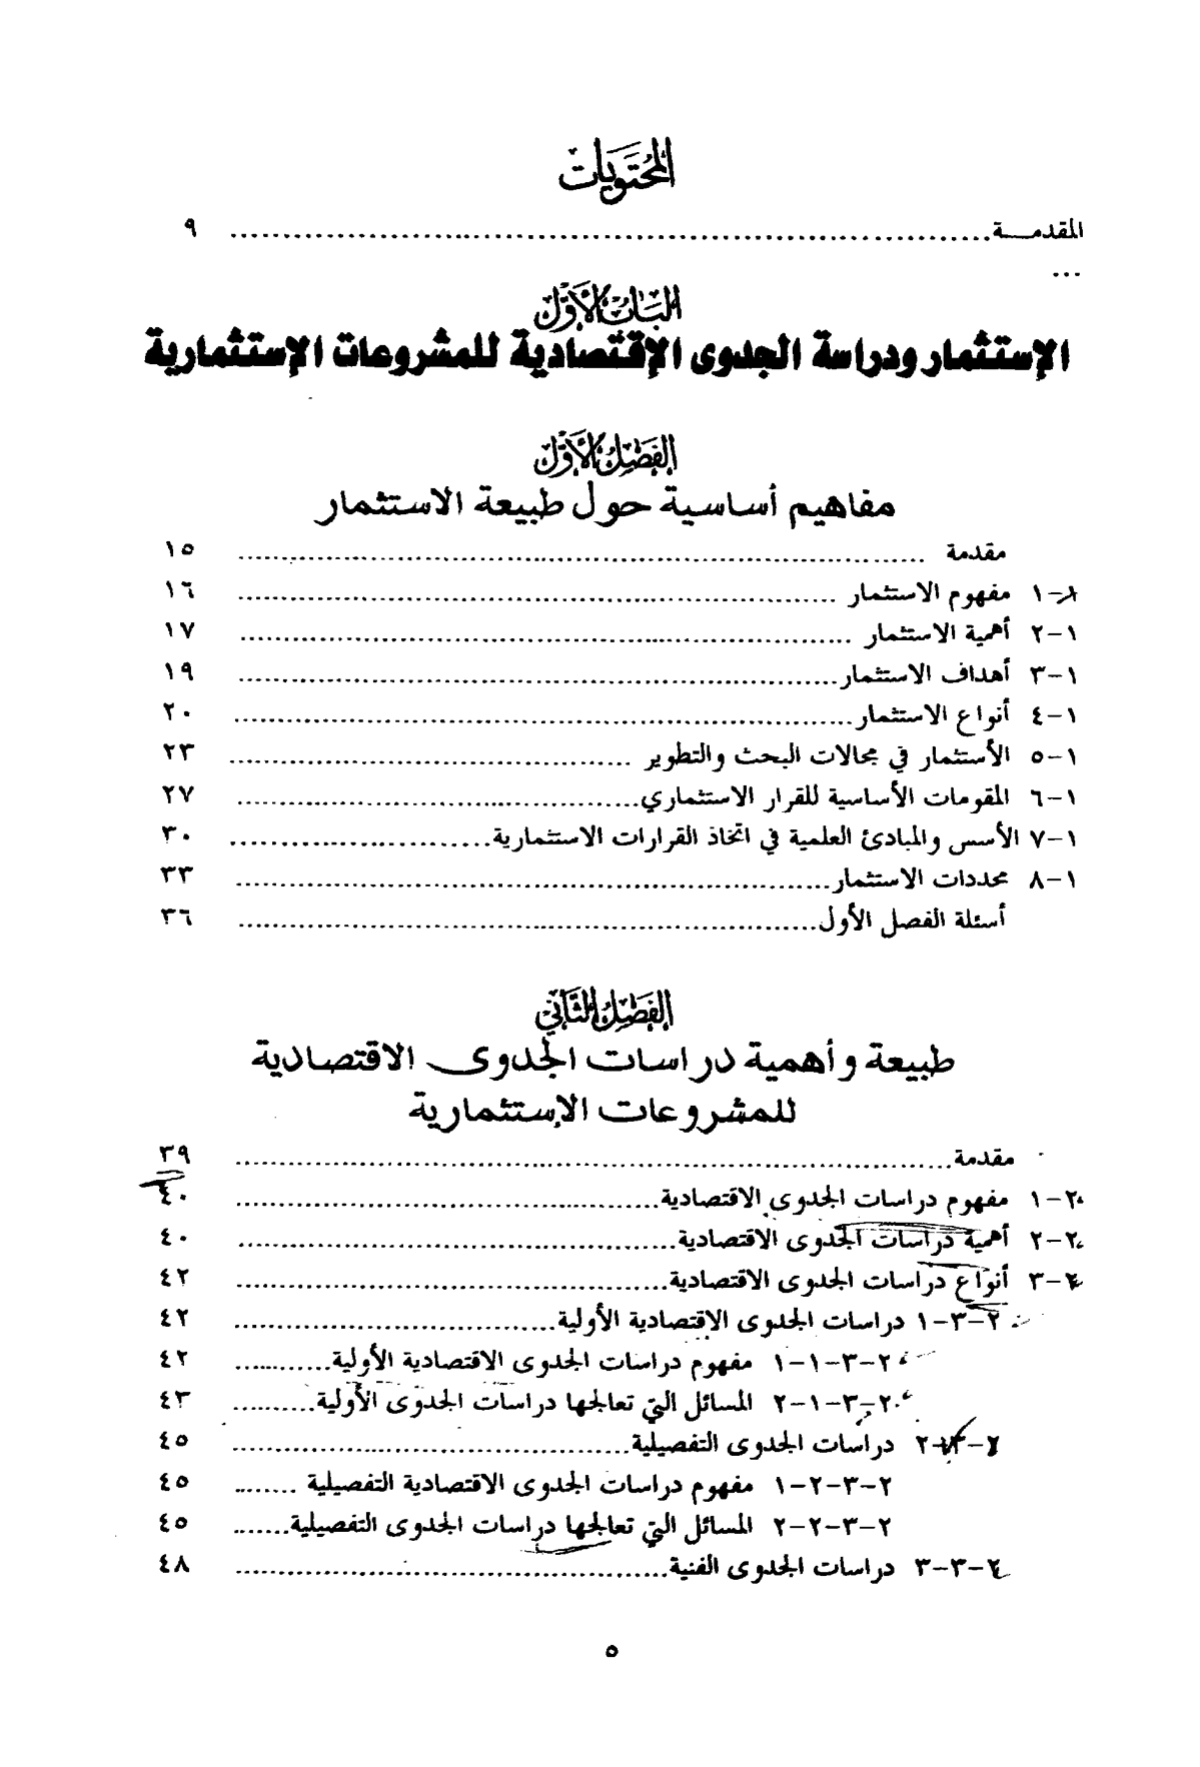 المحتويات
المقدمـــة ........................................ ٩
...
الباب الأول
الإستثمار ودراسة الجدوى الإقتصادية للمشروعات الإستثمارية
الفصل الأول
مفاهيم أساسية حول طبيعة الاستثمار
مقدمة ........................................ ١٥
١-١ مفهوم الاستثمار ........................................ ١٦
١-٢ أهمية الاستثمار ........................................ ١٧
١-٣ أهداف الاستثمار ........................................ ١٩
١-٤ أنواع الاستثمار ........................................ ٢٠
١-٥ الأستثمار في مجالات البحث والتطوير ........................................ ٢٣
١-٦ المقومات الأساسية للقرار الاستثماري ........................................ ٢٧
١-٧ الأسس والمبادئ العلمية في اتخاذ القرارات الاستثمارية ........................................ ٣٠
١-٨ محددات الاستثمار ........................................ ٣٣
أسئلة الفصل الأول ........................................ ٣٦
الفصل الثاني
طبيعة وأهمية دراسات الجدوى الاقتصادية
للمشروعات الإستثمارية
مقدمة ........................................ ٣٩
٢-١ مفهوم دراسات الجدوى الاقتصادية ........................................ ٤٠
٢-٢ أهمية دراسات الجدوى الاقتصادية ........................................ ٤٠
٢-٣ أنواع دراسات الجدوى الاقتصادية ........................................ ٤٢
٢-٣-١ دراسات الجدوى الاقتصادية الأولية ........................................ ٤٢
٢-٣-١-١ مفهوم دراسات الجدوى الاقتصادية الأولية ............ ٤٢
٢-٣-١-٢ المسائل التي تعالجها دراسات الجدوى الأولية .......... ٤٣
٢-٣-٢ دراسات الجدوى التفصيلية ........................................ ٤٥
٢-٣-٢-١ مفهوم دراسات الجدوى الاقتصادية التفصيلية ........ ٤٥
٢-٣-٢-٢ المسائل التي تعالجها دراسات الجدوى التفصيلية ....... ٤٥
٢-٣-٣ دراسات الجدوى الفنية ........................................ ٤٨
٥